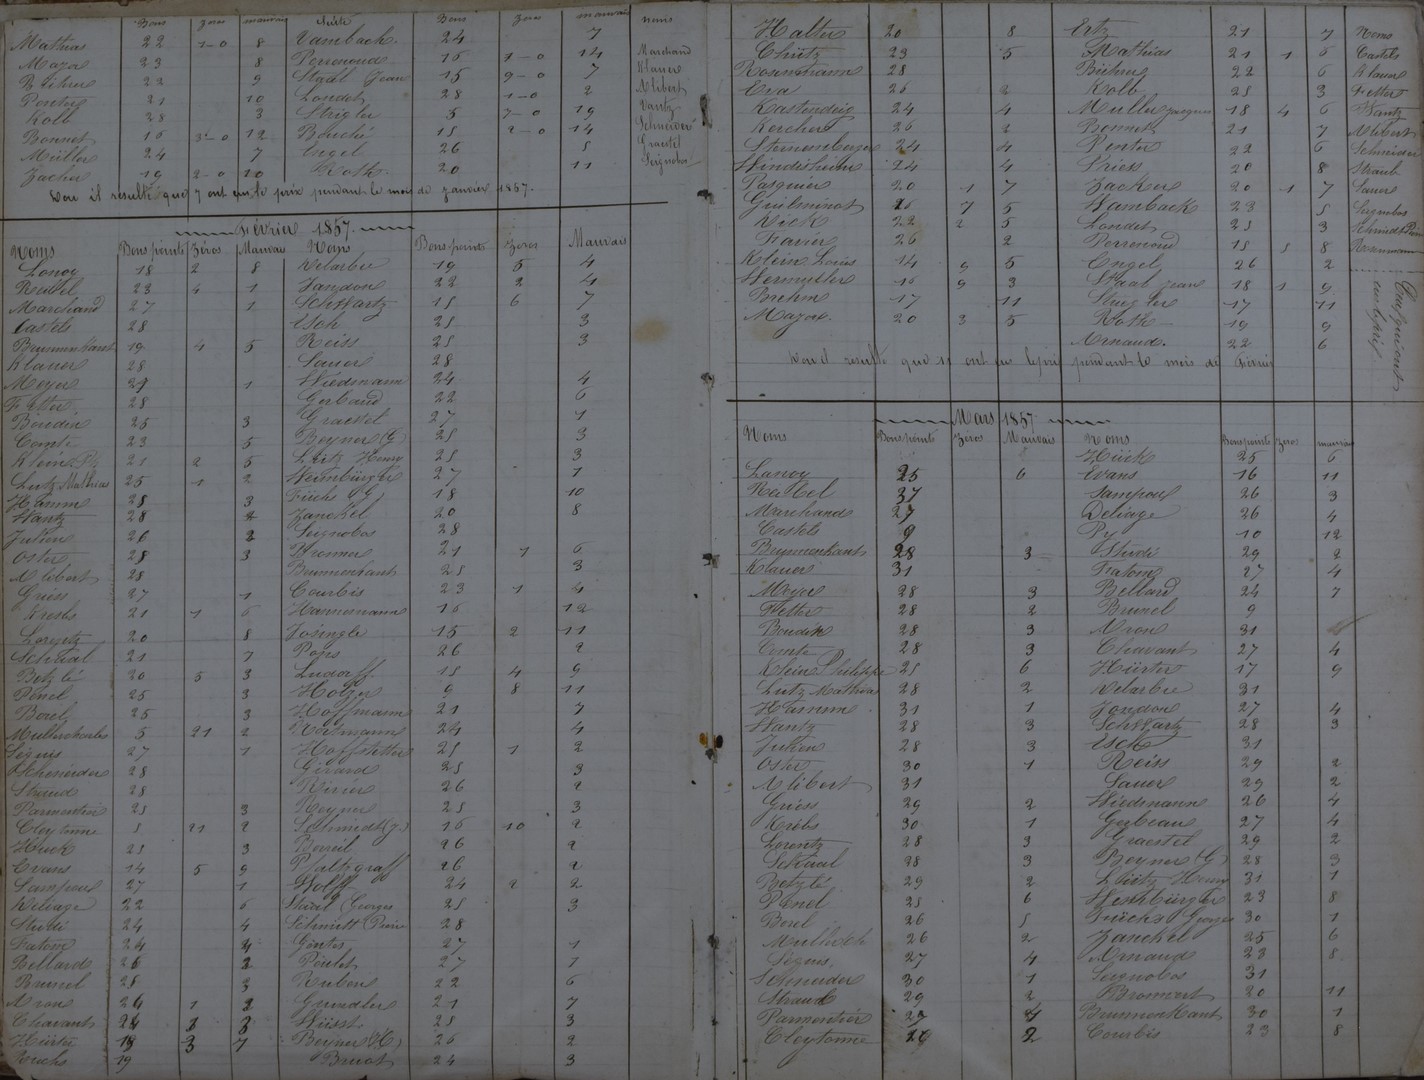 Bons zeros mauvais Suite Bons zeros mauvais noms
Mathias 22 1-0 8 Vambach 24 7
Maza 23 8 Perronond 15 1-0 14 Marchand
9 Staal Jean 15 9-0 7 Klauer
10 Londet 28 1-0 2 Alibert
Kolb 28 3 Strigler 5 7-0 19 Vantz
Bonnet 16 3-0 12 Bouché 15 2-0 14 Schneider
Müller 24 7 Engel 26 5 Graestel
Zacher 19 2-0 10 Roth 20 11 Seignobos
Dou il resulte que 7 ont eu le prix pendant le mois de Janvier 1857.
Février 1857
Noms Bons points Zéros Mauvais Noms Bons points Zeros Mauvais
Lanoy 18 2 8 Delarbre 19 5 4
Reibel 23 4 1 Jandon 22 2 4
Marchand 27 1 Schwartz 15 6 7
Castels 28 Esch 25 3
Brunnenkant 19 4 5 Reiss 25 3
Klauer 28 Sauer 28
Meyer 27 1 Wiedmann 24 4
Fetter 28 Gerbaud 22 6
Boudin 25 3 Graestel 27 1
Comte 23 5 Beyner (G) 25 3
Klein Ph. 21 2 5 Lutz Henry 25 3
Lutz Mathias 25 1 2 Weinbürger 27 1
Hamm 25 3 Füchs (G) 18 10
Wantz 28 2 Zanckel 20 8
Julien 26 2 Seignobos 28
Oster 25 3 Kremer 21 1 6
Alibert 28 Brunnenkant 25 3
Griess 27 1 Courbis 23 1 4
Krebs 21 1 6 Hannemann 16 12
Lorentz 20 8 Josingle 15 2 11
Schaal 21 7 Pons 26 2
Betzlé 20 5 3 Ludorff 15 4 9
Penel 25 3 Holzer 9 8 11
Borel 25 3 Hoffmann 21 7
Muller charles 5 21 2 Kortmann 24 4
Séguis 27 1 Hoffstetter 25 1 2
Schneider 28 Girard 25 3
Straud 28 Rivier 26 2
Parmentier 25 3 Reyner 25 3
Cleytonne 5 21 2 Schmidt (J.) 16 10 2
Huck 25 3 Borrel 26 2
Evans 14 5 9 Pfaltzgraff 26 2
Sampoux 27 1 Wolff 24 2 2
Deléage 22 6 Staal Georges 25 3
Studi 24 4 Schmitt Pierre 28
Fatom 24 4 Gontes 27 1
Bellard 26 2 Poulet 27 1
Brunel 25 3 Ruben 22 6
Aron 24 1 2 Gundler 21 7
Chavant 24 1 3 Wüsst 25 3
Hürter 18 3 7 Beyner (H) 26 2
Fouchs 19 Bruot 24 3
Halter 20 8 Ertz 21 7 Noms
Chüitz 23 5 Mathias 21 1 6 Castels
Rosenmann 28 Bühre 22 6 Klauer
Eva 26 2 Kolb 25 3 Fetter
Kastendeis 24 4 Muller Jacques 18 4 6 Wantz
Kercher 26 2 Bonnet 21 7 Alibert
Steinenberger 24 4 Penter 22 6 Schneider
Windisheim 24 4 Vriess 20 8 Straub
Pasquier 20 1 7 Zacker 20 1 7 Sauer
Guilminot 16 7 5 Wamback 23 5 Seignobos
Kick 22 2 5 Londet 25 3 Schmidt Pierre
Favier 26 2 Perronond 15 5 8 Rosenmann
Klein Louis 14 9 5 Engel 26 2
Wermuller 16 9 3 Staal Jean 18 1 9
Brehm 17 11 Strigler 17 11
Mazax. 20 3 5 Roth 19 9
Arnaud. 22 6
Ceux qui ont eu le prix
Dou il resulte que 11 ont eu le prix pendant le mois de Février
Mars 1857
Noms Bons points Zéros Mauvais Noms Bons points Zéros mauvais
Huck 25 6
Lanoy 25 6 Evans 16 11
Reibel 37 Sampoux 26 3
Marchand 27 Deléage 26 4
Castels 9 Py 10 12
Brunnenkant 28 3 Studi 29 2
Klauer 31 Fatom 27 4
Meyer 28 3 Bellard 24 7
Fetter 28 2 Brunel 9
Boudin 28 3 Aron 31
Comte 28 3 Chavant 27 4
Klein Philippe 25 6 Hürter 17 9
Lutz Mathias 28 2 Delarbre 31
Hamm 31 1 Jondon 27 4
Wantz 28 3 Schwartz 28 3
Julien 28 3 Esch 31
Oster 30 1 Reiss 29 2
Alibert 31 Sauer 29 2
Griess 29 2 Wiedmann 26 4
Krebs 30 1 Gerbeau 27 4
Lorentz 28 3 Graestel 29 2
Schaal 28 3 Beyner (G) 28 3
Betzlé 29 2 Lütz Henry 31 1
Penel 25 6 Weinbürger 23 8
Borel 26 5 Füchs Georges 30 1
Muller ch 26 2 Zanckel 25 6
Séguis 27 4 Arnaud 23 8
Schneider 30 1 Seignobos 31
Straud 29 2 Bromont 20 11
Parmentier 27 4 Brunnenkant 30 1
Cleytonne 26 2 Courbis 23 8